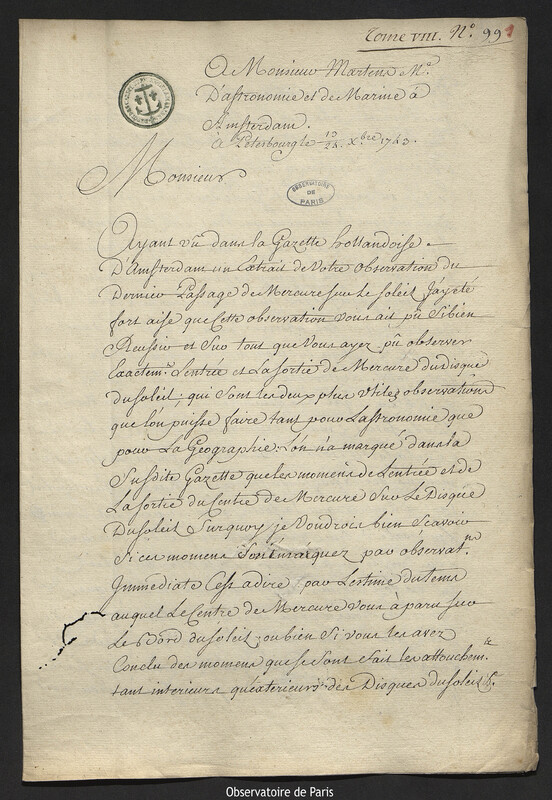 Tome VIII. N.º 99 1
A Monsieur Martens M.e
D'astronomie et de Marine à
Amsterdam.
à Petersbourg le 13/24 Xbre 1743.
OBSERVATOIRE DE PARIS
Monsieur
Ayant vû dans la Gazette hollandoise
D'Amsterdam un Extrait de Votre Observation du
Dernier Passage de Mercure sur le soleil J'ay eté
fort aise que Cette observation vous ait pû Si bien
Reussir et Sur tout que Vous ayez pû observer
Exactem.t L'entrée et La Sortie de Mercure du disque
du soleil; qui sont les deux plus Utiles observations
que l'on puisse faire tant pour L'astronomie que
pour La Geographie. L'on n'a marqué dans la
Susdite Gazette que les momens de L'entrée et de
La Sortie du Centre de Mercure Sur Le Disque
Du Soleil Surquoy je Voudrois bien Scavoir
Si ces momens Sont marquez par observat.on
Immediate C'est adire, par L'estime du tems
auquel Le Centre de Mercure Vous à paru Sur
Le Bord du soleil; ou bien Si vous les avez
Conclu des momens que se sont fait les attouchem.ts
tant interieurs qu'exterieurs des Disques du Soleil &
Observatoire de Paris